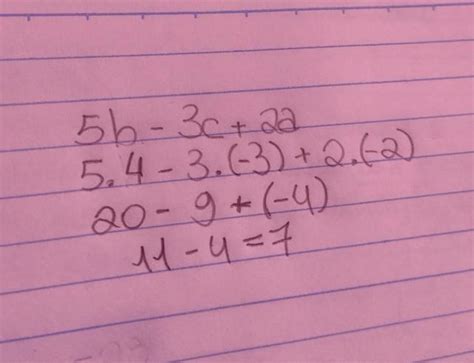 5b - 3c + 2a
5.4 - 3.(-3) + 2.(-2)
20 - 9 + (-4)
11 - 4 = 7